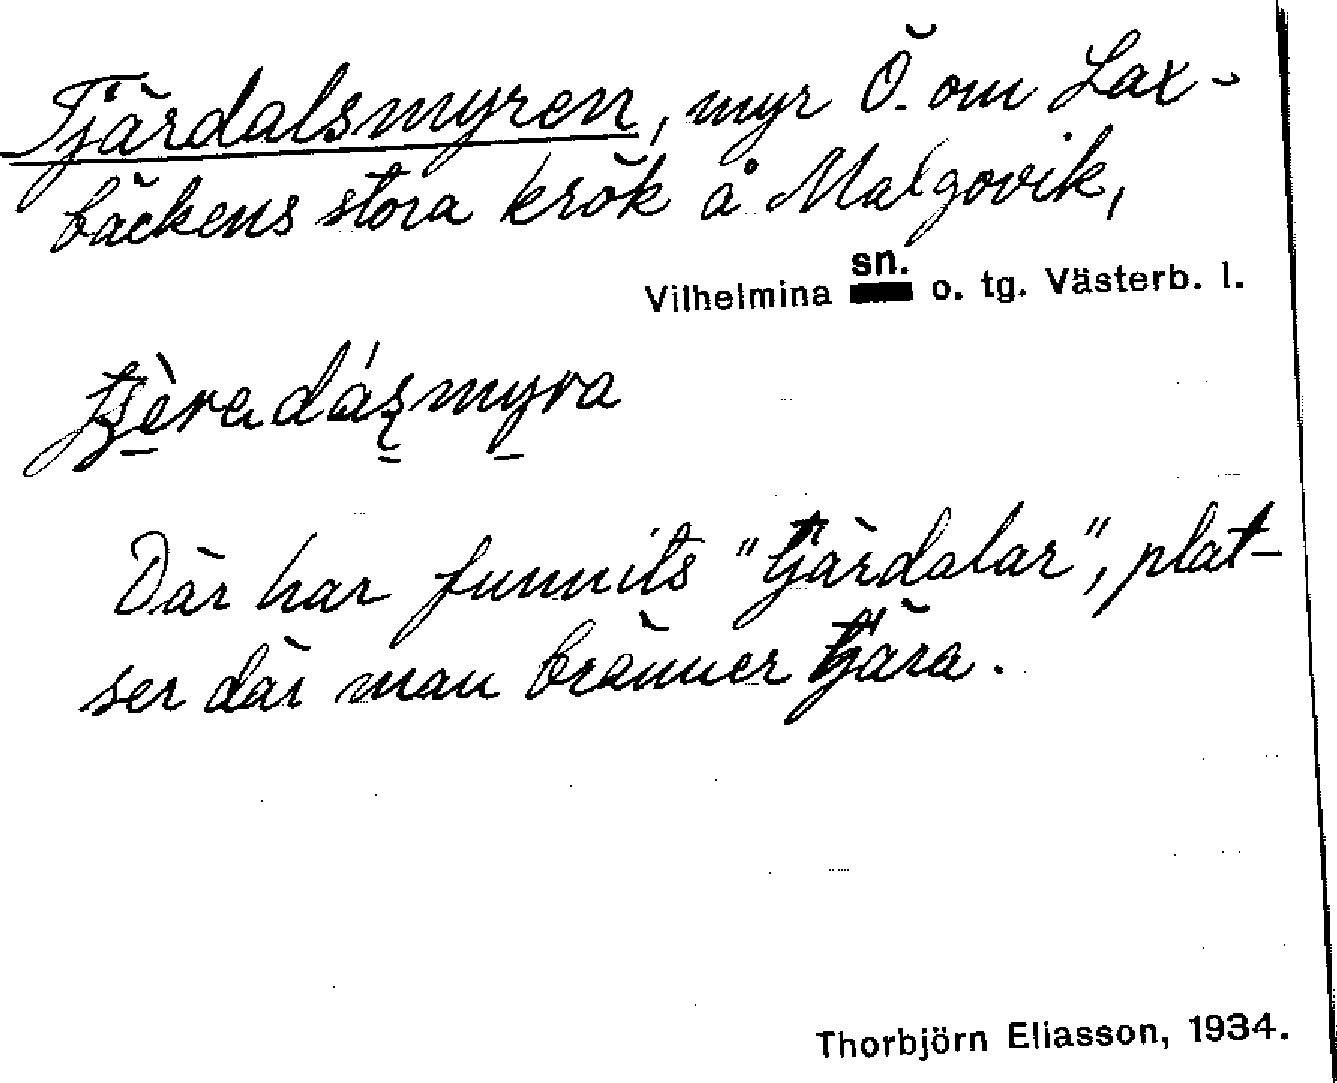 Tjärdalsmyren, myr Ö. om Lax-
bäckens stora krök å Malgovik,
Vilhelmina sn. o. tg. Västerb. l.
Där har funnits "tjärdalar", plat-
ser där man bränner tjära.
Thorbjörn Eliasson, 1934.